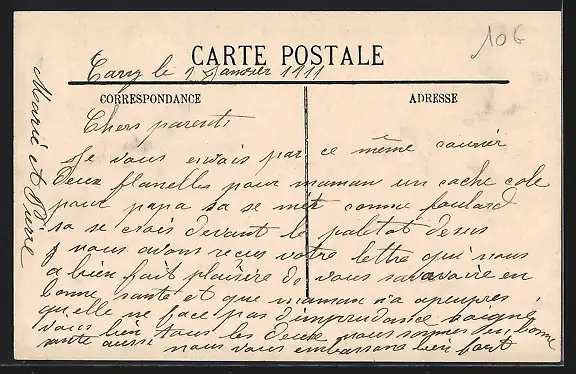 10 G
CARTE POSTALE
Carry le 2 Janvier 1911
CORRESPONDANCE
ADRESSE
Chers parents
Je vous envais par ce même courier
deux flanelles pour maman un cache cole
pour papa sa se mèt comme foulard
sa se crois devant le paletot desus
y nous avons recus votre lettre qui nous
a bien fait plaisire de vous savoire en
bonne sante et que maman
qu'elle ne face pas d'imprudance soigné
vous bien tous les deux nous sommes en bonne
sante aussi nous vous embrassons bien fort
Marie et Pierre